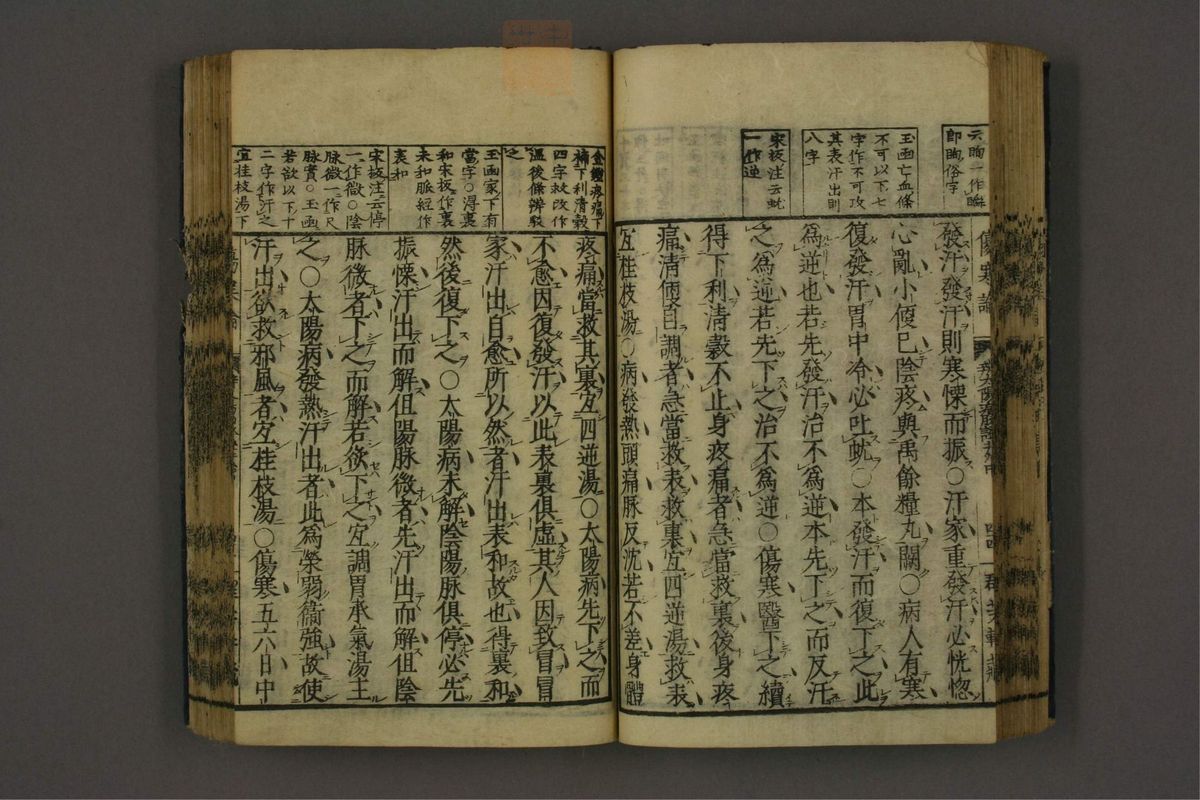 云眴一作瞬
即眴俗字
玉函亡血條
不可以下七
字作不可攻
其表汗出則
八字
宋板注云蚘
一作逆
傷寒論
發汗發汗則寒慄而振○汗家重發汗必恍惚
心亂小便已陰疼與禹餘糧丸闕○病人有寒
復發汗胃中冷必吐蚘○本發汗而復下之此
為逆也若先發汗治不為逆本先下之而反汗
之為逆若先下之治不為逆○傷寒醫下之續
得下利清穀不止身疼痛者急當救裏後身疼
痛清便自調者急當救表救裏宜四逆湯救表
宜桂枝湯○病發熱頭痛脉反沈若不差身體
金鑑疼痛下
補下利清穀
四字救改作
溫後條辨駁
之
玉函家下有
當字○得裏
和宋板作裏
未和脈經作
表和
宋板注云停
一作微○陰
脉微一作尺
脉實○玉函
若欲以下十
二字作汗之
宜桂枝湯下
疼痛當救其裏宜四逆湯○太陽病先下之而
不愈因復發汗以此表裏俱虛其人因致冒冒
家汗出自愈所以然者汗出表和故也得裏和
然後復下之○太陽病未解陰陽脉俱停必先
振慄汗出而解但陽脉微者先汗出而解但陰
脉微者下之而解若欲下之宜調胃承氣湯主
之○太陽病發熱汗出者此為榮弱衞強故使
汗出欲救邪風者宜桂枝湯○傷寒五六日中